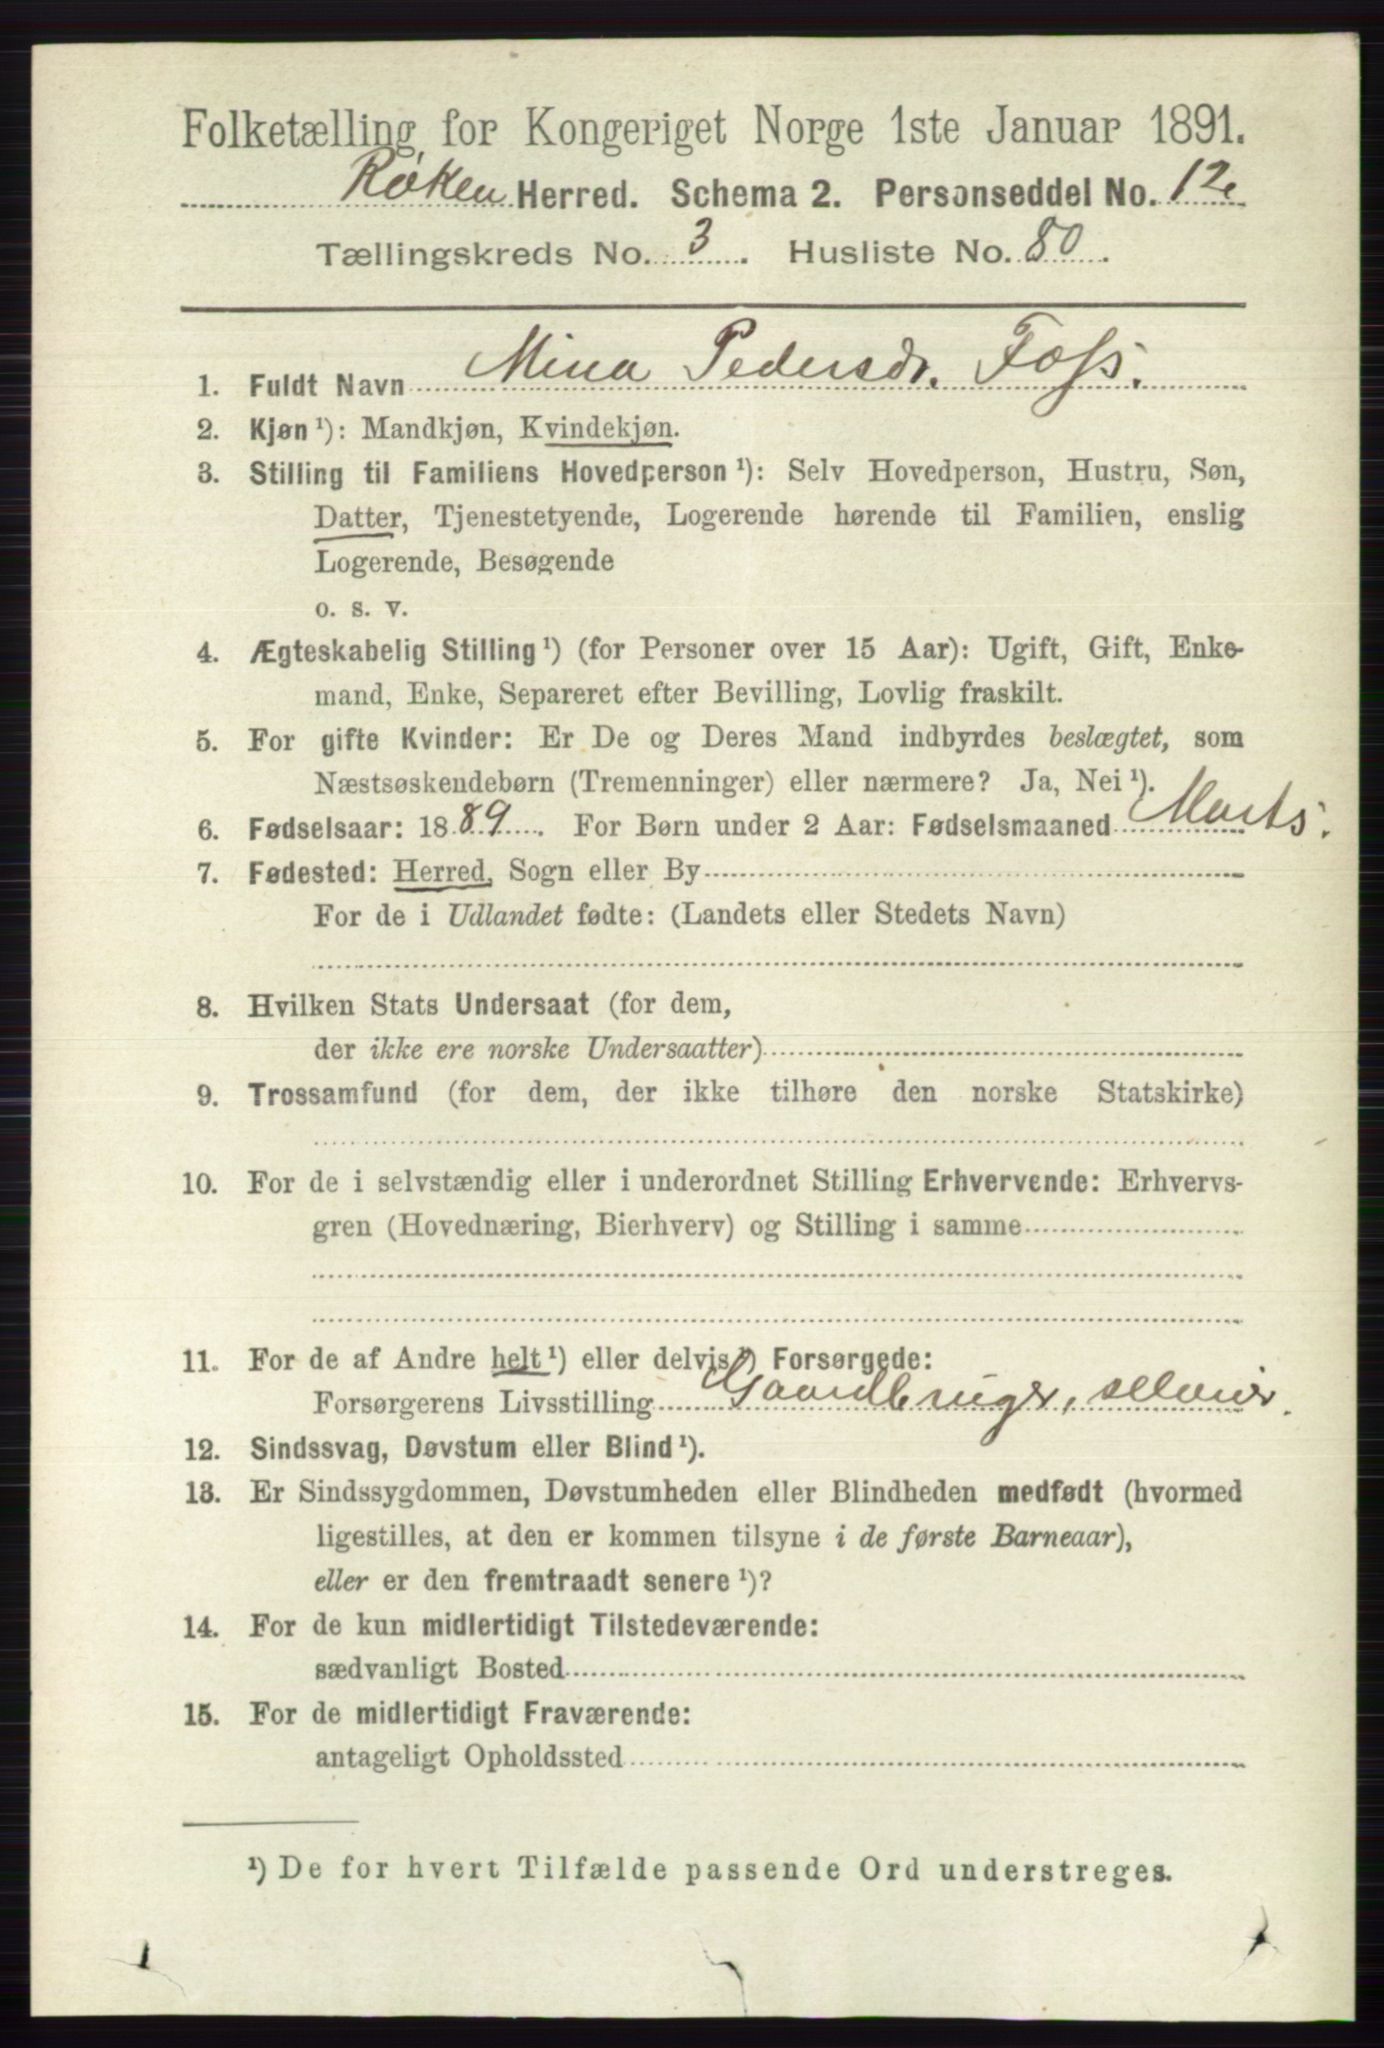 Folketælling for Kongeriget Norge 1ste Januar 1891.
Røken Herred. Schema 2. Personseddel No. 12
Tællingskreds No. 3. Husliste No. 80.
1. Fuldt Navn Mina Pedersdr. Foss.
2. Kjøn ¹): Mandkjøn, Kvindekjøn.
3. Stilling til Familiens Hovedperson ¹): Selv Hovedperson, Hustru, Søn,
Datter, Tjenestetyende, Logerende hørende til Familien, enslig
Logerende, Besøgende
o. s. v.
4. Ægteskabelig Stilling ¹) (for Personer over 15 Aar): Ugift, Gift, Enke-
mand, Enke, Separeret efter Bevilling, Lovlig fraskilt.
5. For gifte Kvinder: Er De og Deres Mand indbyrdes beslægtet, som
Næstsøskendebørn (Tremenninger) eller nærmere? Ja, Nei ¹).
6. Fødselsaar: 1889. For Børn under 2 Aar: Fødselsmaaned Marts.
7. Fødested: Herred, Sogn eller By
For de i Udlandet fødte: (Landets eller Stedets Navn)
8. Hvilken Stats Undersaat (for dem,
der ikke ere norske Undersaatter)
9. Trossamfund (for dem, der ikke tilhøre den norske Statskirke)
10. For de i selvstændig eller i underordnet Stilling Erhvervende: Erhvervs-
gren (Hovednæring, Bierhverv) og Stilling i samme
11. For de af Andre helt ¹) eller delvis ¹) Forsørgede:
Forsørgerens Livsstilling Gaardbruger, selveier.
12. Sindssvag, Døvstum eller Blind ¹).
13. Er Sindssygdommen, Døvstumheden eller Blindheden medfødt (hvormed
ligestilles, at den er kommen tilsyne i de første Barneaar),
eller er den fremtraadt senere ¹)?
14. For de kun midlertidigt Tilstedeværende:
sædvanligt Bosted
15. For de midlertidigt Fraværende:
antageligt Opholdssted
¹) De for hvert Tilfælde passende Ord understreges.